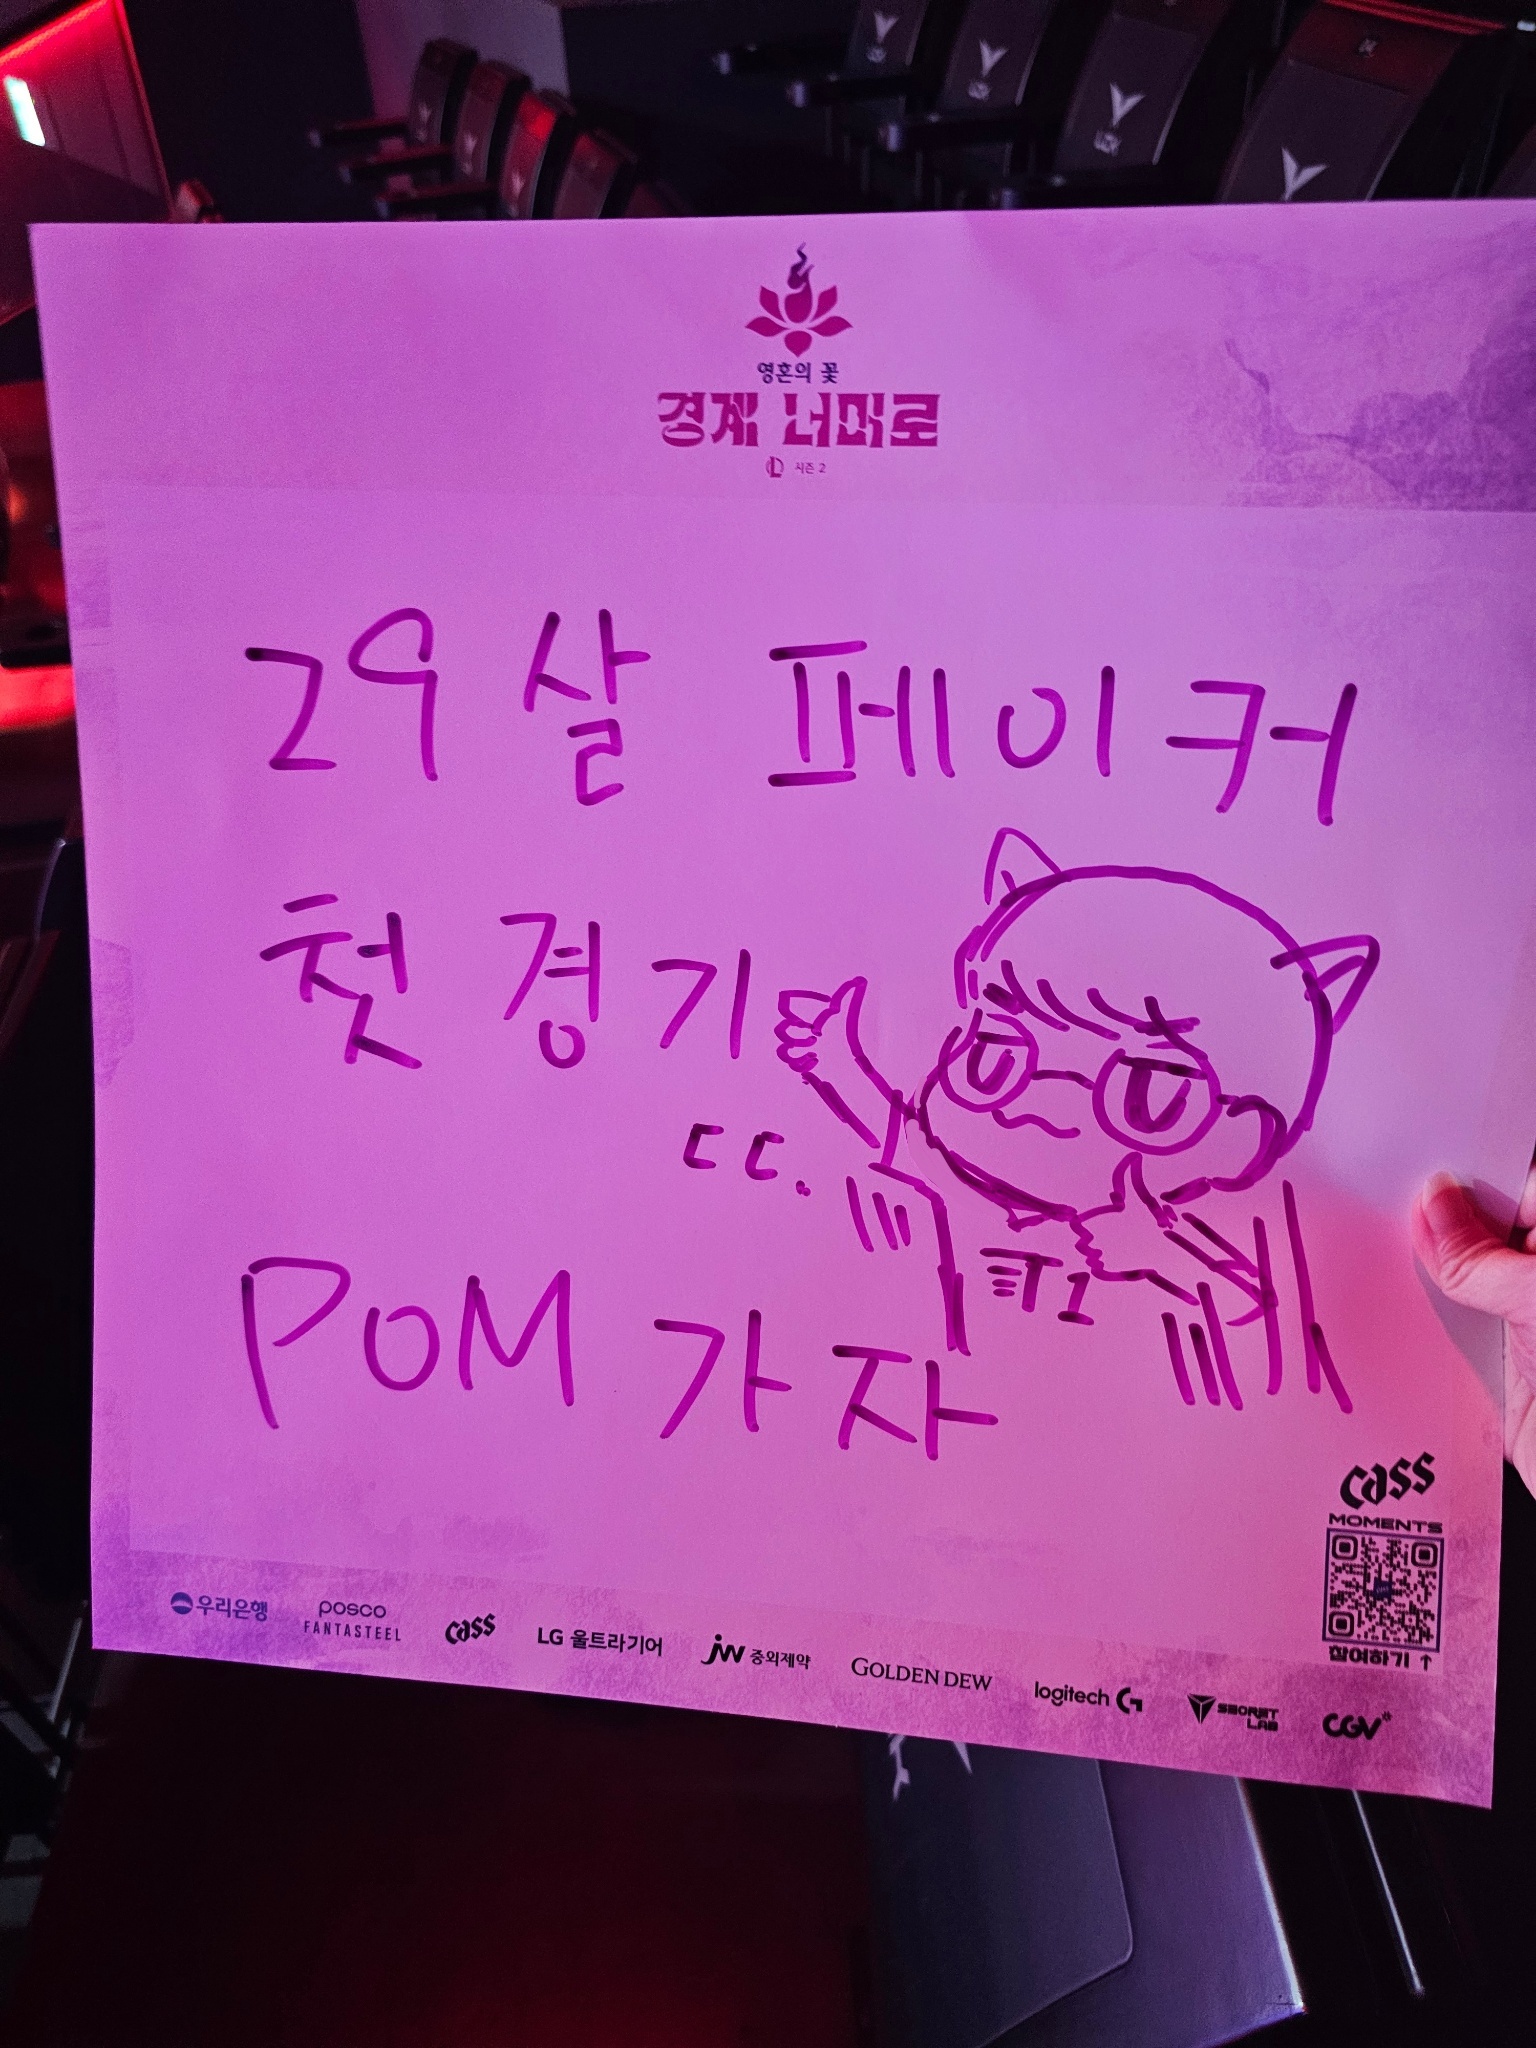 영혼의 꽃
경계 너머로
시즌 2
29살 페이커
첫 경기
ㄷㄷ.
T1
POM 가자
cass
MOMENTS
참여하기 ↑
우리은행
posco
FANTASTEEL
cass
LG 울트라기어
jw 중외제약
GOLDEN DEW
logitech G
SECRET
LAB
CGV